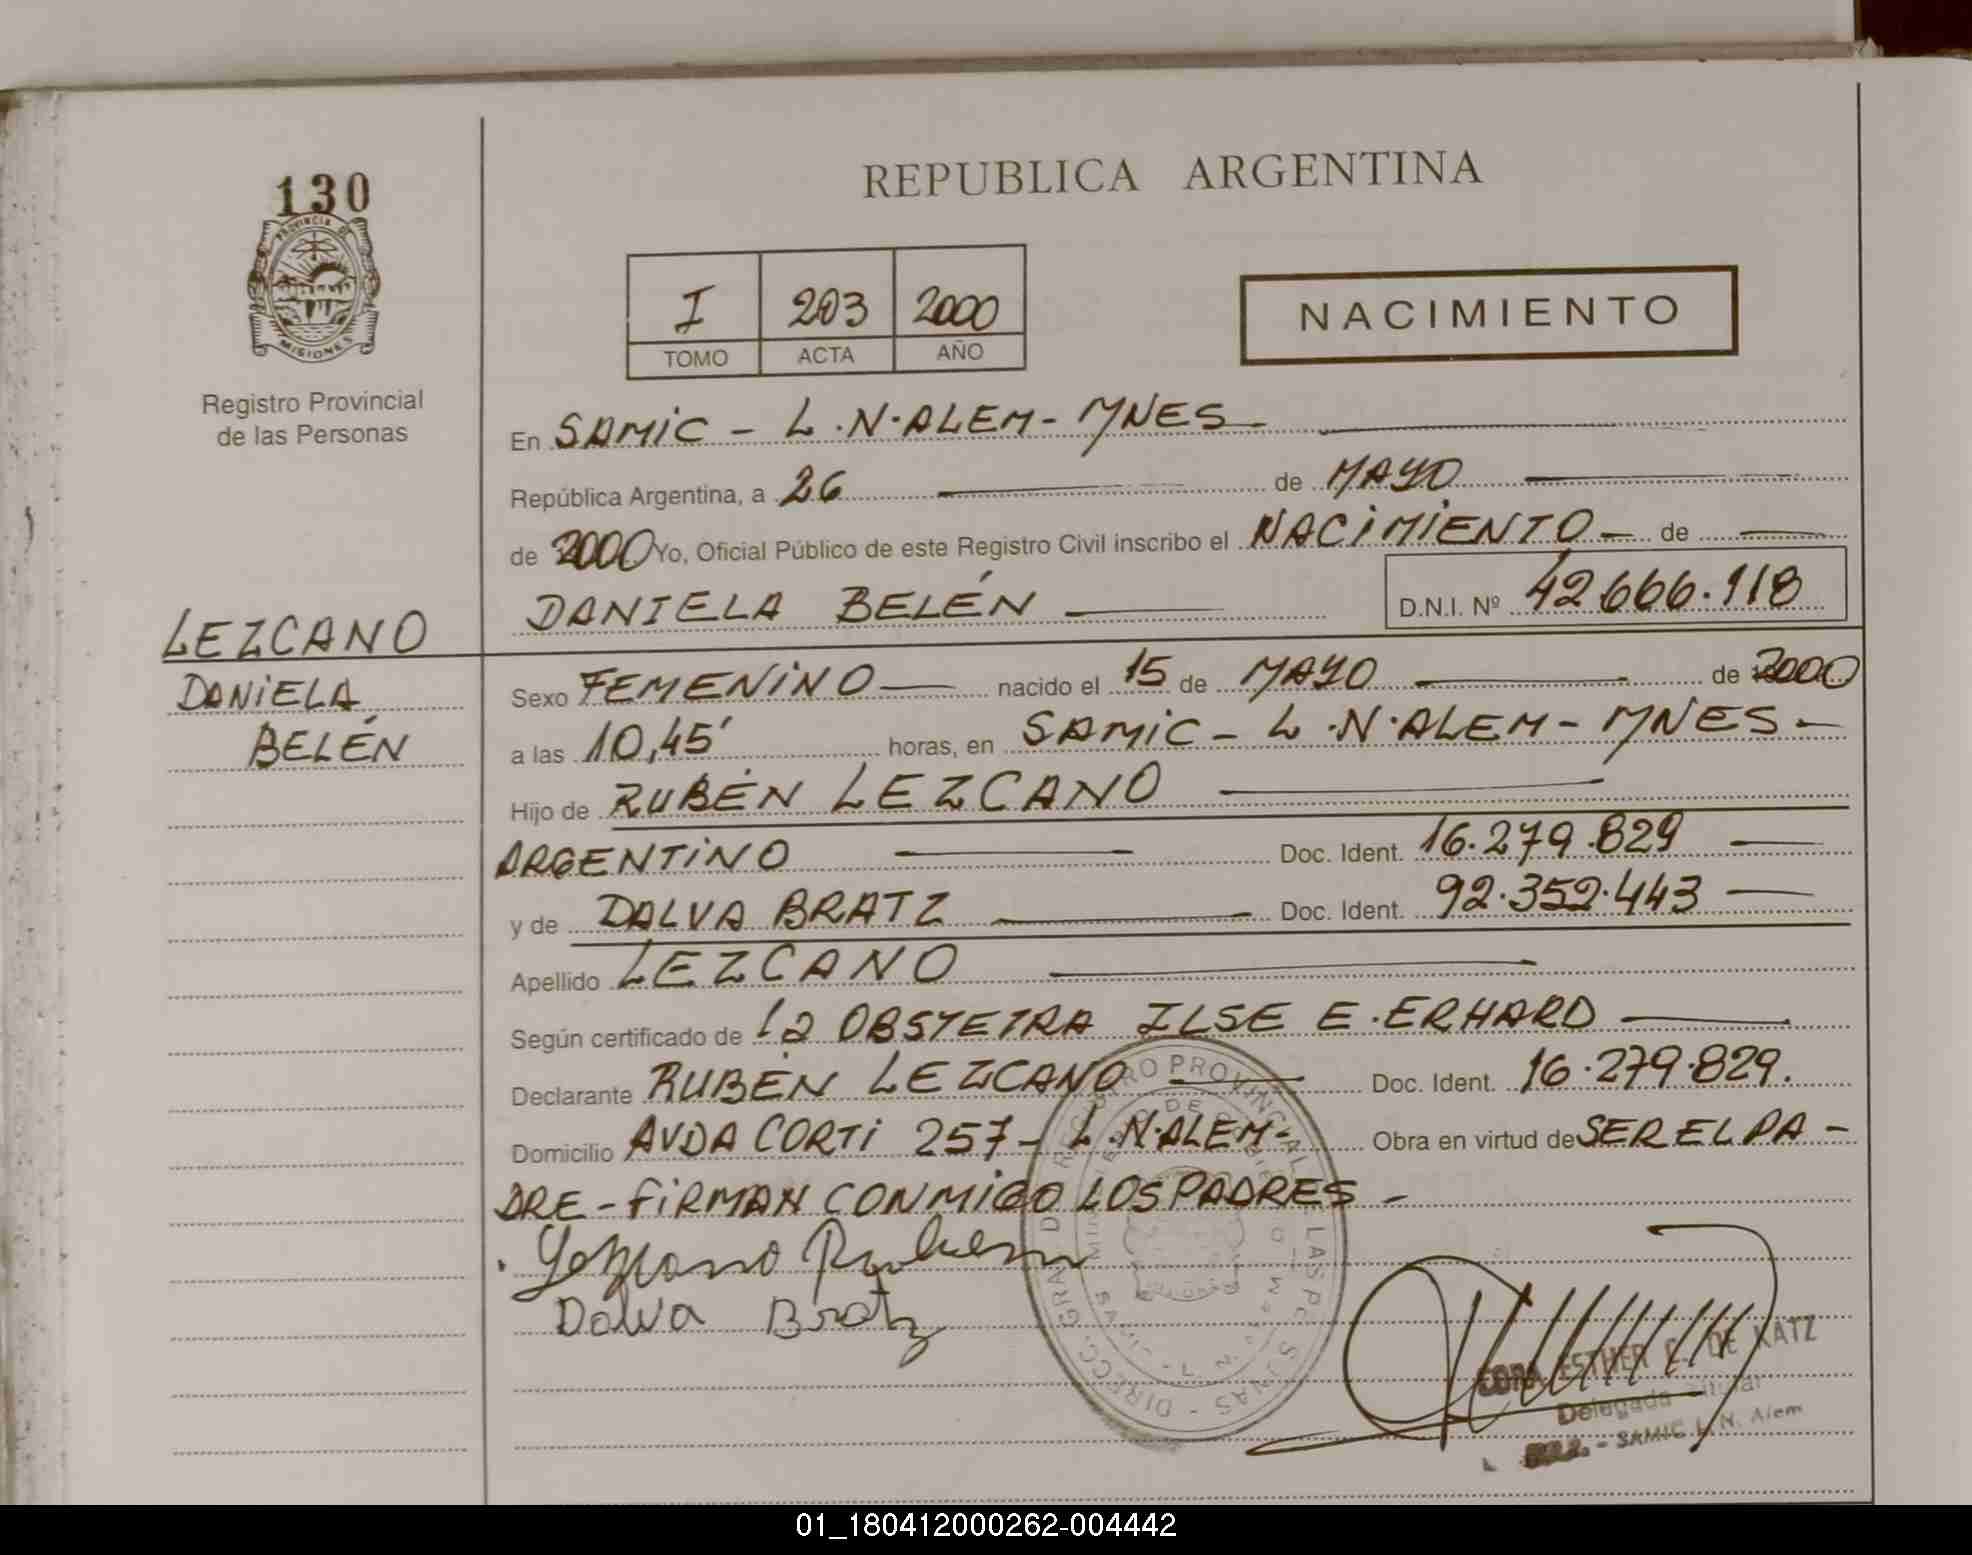 130
PROVINCIA DE
MISIONES
Registro Provincial
de las Personas
LEZCANO
DANIELA
BELÉN
REPUBLICA ARGENTINA
I 203 2000
TOMO ACTA AÑO
NACIMIENTO
En SAMIC - L.N.ALEM - MNES
República Argentina, a 26 de MAYO
de 2000 Yo, Oficial Público de este Registro Civil inscribo el NACIMIENTO de
DANIELA BELÉN D.N.I. Nº 42.666.118
Sexo FEMENINO nacido el 15 de MAYO de 2000
a las 10,45' horas, en SAMIC - L.N.ALEM - MNES -
Hijo de RUBÉN LEZCANO
ARGENTINO Doc. Ident. 16.279.829
y de DALVA BRATZ Doc. Ident. 92.352.443
Apellido LEZCANO
Según certificado de la OBSTETRA ILSE E. ERHARD
Declarante RUBÉN LEZCANO Doc. Ident. 16.279.829.
Domicilio AVDA CORTI 257 - L.N.ALEM - Obra en virtud de SER EL PA -
DRE - FIRMAN CONMIGO LOS PADRES -
Lezcano Ruben
Dalva Bratz
REGISTRO PROVINCIAL DE LAS PERSONAS
ESTHER E. DE KATZ
Delegada Titular
- SAMIC L.N. Alem
01_180412000262-004442